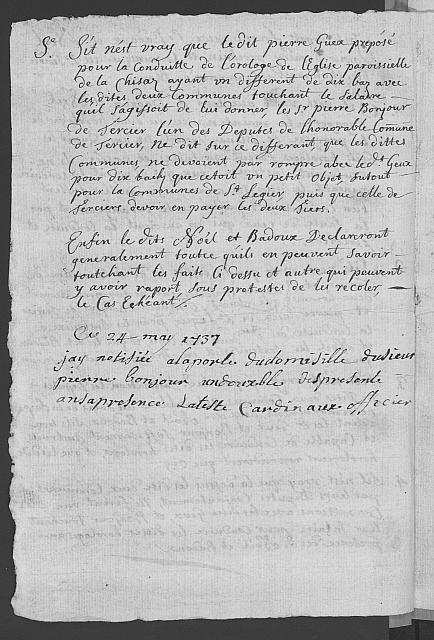 5e. Sit n'est vray que ledit pierre Guex préposé
pour la Conduitte de l'orologe de l'Eglise paroissielle
de la Chisaz ayant vn different de dix baz avec
les dites deux Communes touchant le Salaire
quil s'agissoit de lui donner, les Sr pierre Bonjour
de Sercier l'un des Deputes de l'honorable Comune
de Sercier, Ne dit sur ce differant, que les dittes
Communes ne devoient par rompre abec le dt Geux
pour dix bach que cetoit vn petit Objet, sutout
pour la Communes de St Legier puis que celle de
Serciers devoir en payer les deux tiers.
Enfin le dits Noël et Badoux Declareront
generalement toutce qu'ils en peuvent Savoir
toutchant les faits Ci dessu et autre qui peuvent
y avoir raport sous protestes de les recoler
le Cas Echéant.
Ce 24 may 1737
jay notifiée alaporte dudomisille dusieur
pierre bonjour undouxble despresente
ansapresence Lateste Cardinaux officier